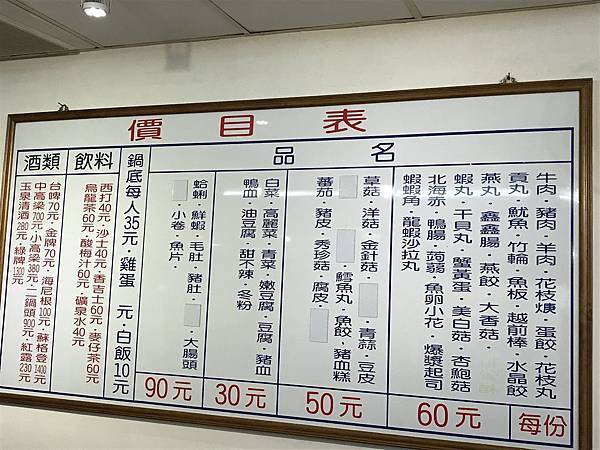 價目表
品名
牛肉・豬肉・羊肉・花枝焿・蛋餃・花枝丸
貢丸・魷魚・竹輪・魚板・越前棒・水晶餃
燕丸・鑫鑫腸・燕餃・大香菇・
蝦丸・干貝丸・蟹黃蛋・美白菇・杏鮑菇
北海赤・鴨腸・蒟蒻・魚卵小花・爆漿起司
蝦蝦角・龍蝦沙拉丸
每份
60元
草菇・洋菇・金針菇・青蒜・豆皮
鱈魚丸・魚餃・豬血糕
蕃茄・豬皮・秀珍菇・腐皮・
50元
白菜・高麗菜・青菜・嫩豆腐・豆腐・豬血
鴨血・油豆腐・甜不辣・冬粉
30元
蛤蜊・鮮蝦・毛肚・豬肚・大腸頭
・小卷・魚片・
90元
鍋底每人35元・雞蛋 元・白飯10元
飲料
西打40元・沙士40元・香吉士60元・麥仔茶60元
烏龍茶60元・酸梅汁60元・礦泉水40元
酒類
台啤70元・金牌70元・海尼根100元・蘇格登1400元
中高粱700元・小高粱380元・二鍋頭900元・紅露230元
玉泉清酒280元・綠牌1300元